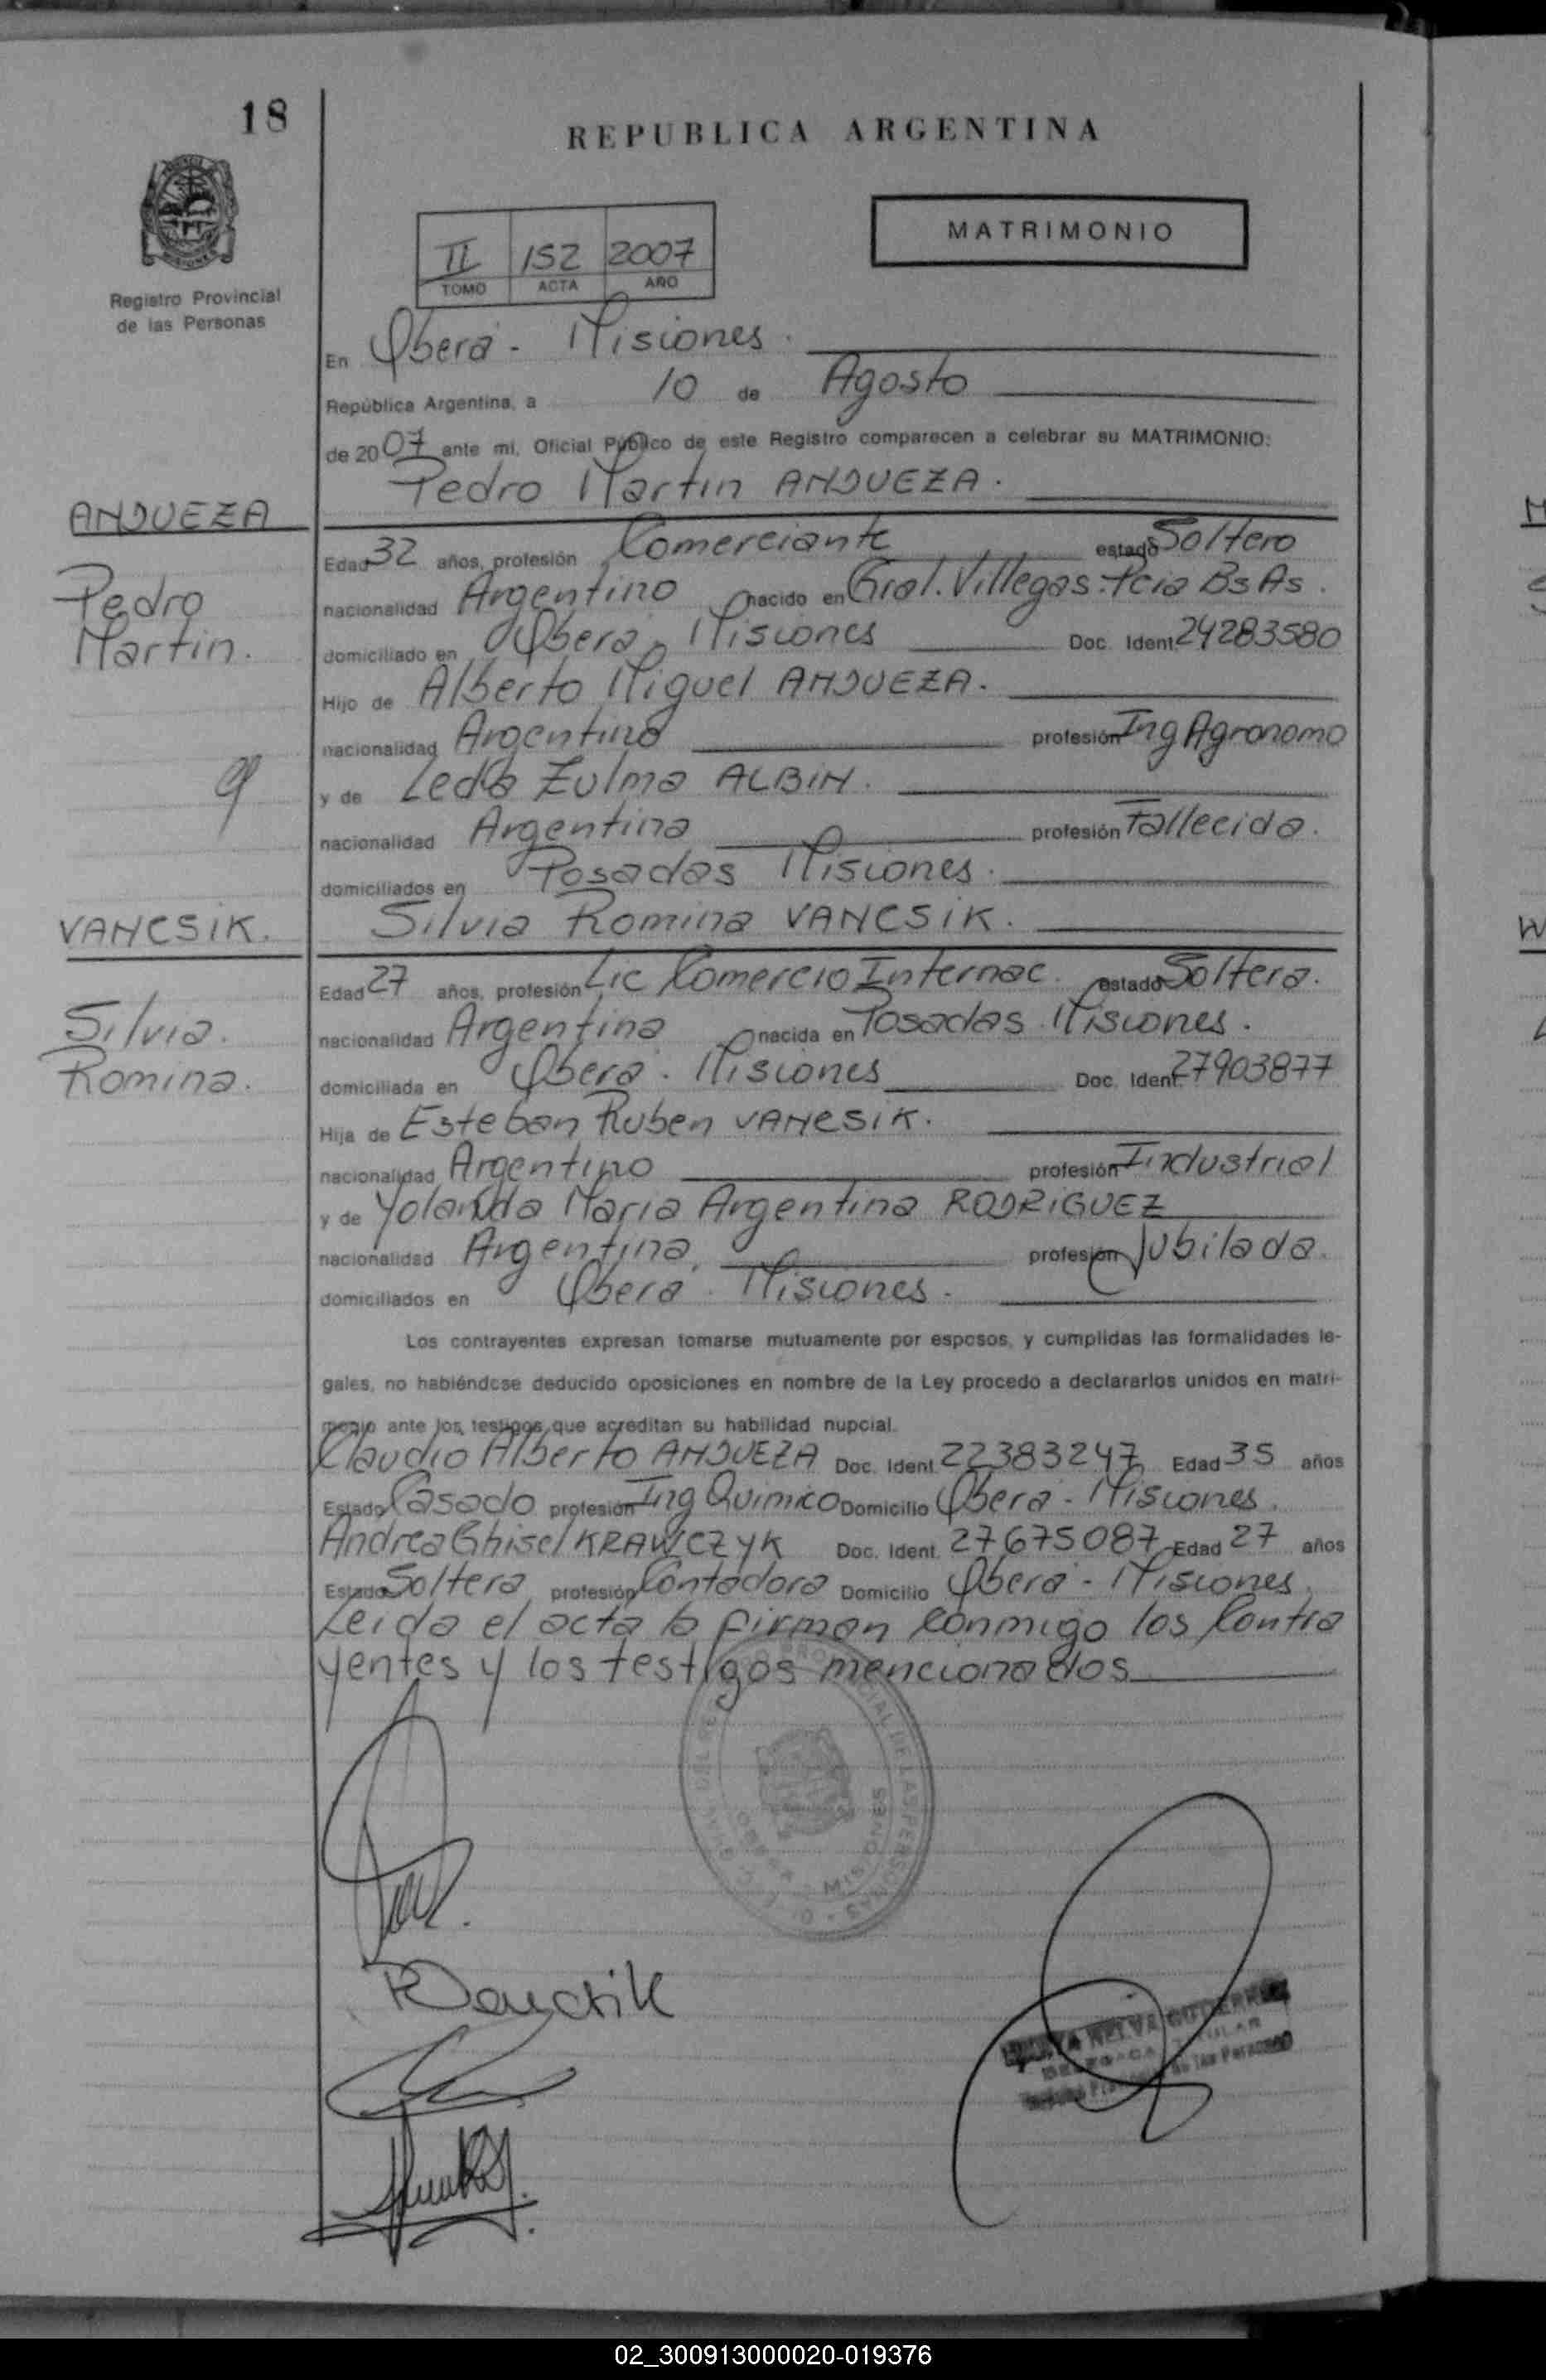 18
REPUBLICA ARGENTINA
MATRIMONIO
II 152 2007
TOMO ACTA AÑO
Registro Provincial
de las Personas
En Oberá - Misiones.
República Argentina, a 10 de Agosto
de 2007 ante mi, Oficial Público de este Registro comparecen a celebrar su MATRIMONIO:
Pedro Martin ANDUEZA.
ANDUEZA
Pedro
Martin.
Edad 32 años, profesión Comerciante estado Soltero
nacionalidad Argentino nacido en Gral. Villegas - Pcia Bs As.
domiciliado en Oberá, Misiones Doc. Ident. 24283580
Hijo de Alberto Miguel ANDUEZA.
nacionalidad Argentino profesión Ing Agronomo
y de Leda Zulma ALBIN.
nacionalidad Argentina profesión Fallecida.
domiciliados en Posadas Misiones.
Silvia Romina VANCSIK.
VANCSIK.
Silvia.
Romina.
Edad 27 años, profesión Lic Comercio Internac. estado Soltera.
nacionalidad Argentina nacida en Posadas. Misiones.
domiciliada en Oberá. Misiones Doc. Ident. 27903877
Hija de Esteban Ruben VANCSIK.
nacionalidad Argentino profesión Industrial
y de Yolanda Maria Argentina RODRIGUEZ
nacionalidad Argentina, profesión Jubilada.
domiciliados en Oberá. Misiones.
Los contrayentes expresan tomarse mutuamente por esposos, y cumplidas las formalidades le-
gales, no habiéndose deducido oposiciones en nombre de la Ley procedo a declararlos unidos en matri-
monio ante los testigos que acreditan su habilidad nupcial.
Claudio Alberto ANDUEZA Doc. Ident. 22383247 Edad 35 años
Estado Casado profesión Ing Quimico Domicilio Oberá - Misiones.
Andrea Ghisel KRAWCZYK Doc. Ident. 27675087 Edad 27 años
Estado Soltera profesión Contadora Domicilio Oberá - Misiones.
Leida el acta la firman conmigo los Contra
yentes y los testigos mencionados
MISIONES
RVancsik
NELVA GUTIERREZ
TITULAR
de las Personas
02_300913000020-019376